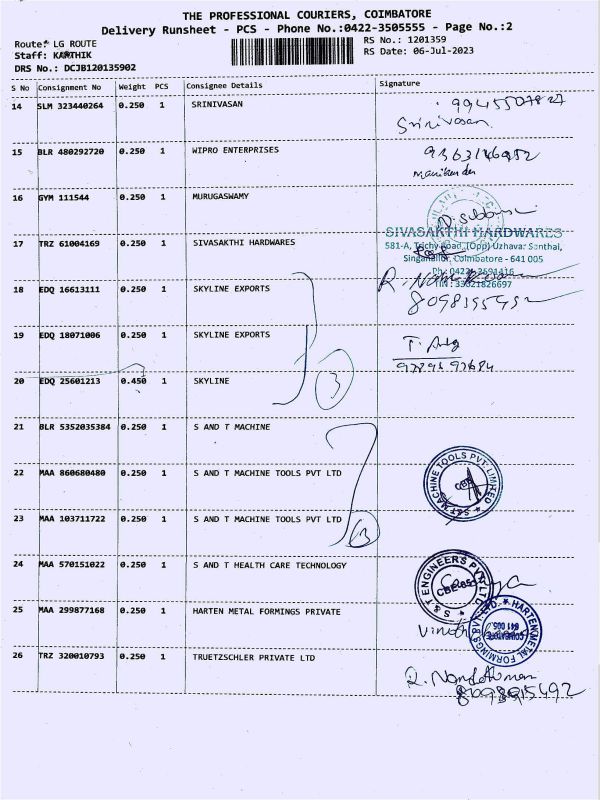 THE PROFESSIONAL COURIERS, COIMBATORE
Delivery Runsheet - PCS - Phone No.:0422-3505555 - Page No.:2
Route: LG ROUTE
RS No.: 1201359
Staff: KARTHIK
RS Date: 06-Jul-2023
DRS No.: DCJB120135902
S No Consignment No Weight PCS Consignee Details Signature
14 SLM 323440264 0.250 1 SRINIVASAN
Srinivasan
15 BLR 480292720 0.250 1 WIPRO ENTERPRISES
16 GYM 111544 0.250 1 MURUGASWAMY
SIVASAKTHI HARDWARES
17 TRZ 61004169 0.250 1 SIVASAKTHI HARDWARES
581-A, Trichy Road, (Opp) Uzhavar Santhai,
Singanallur, Coimbatore - 641 005
Ph: 0422-2591416
TIN : 33621826697
18 EDQ 16613111 0.250 1 SKYLINE EXPORTS
19 EDQ 18071006 0.250 1 SKYLINE EXPORTS
20 EDQ 25601213 0.450 1 SKYLINE
3
21 BLR 5352035384 0.250 1 S AND T MACHINE
22 MAA 860680480 0.250 1 S AND T MACHINE TOOLS PVT LTD
S&T MACHINE TOOLS PVT. LIMITED
CBE
23 MAA 103711722 0.250 1 S AND T MACHINE TOOLS PVT LTD
3
24 MAA 570151022 0.250 1 S AND T HEALTH CARE TECHNOLOGY
S & T ENGINEERS PVT LTD
25 MAA 299877168 0.250 1 HARTEN METAL FORMINGS PRIVATE
HARTEN METAL FORMINGS PVT. LTD.
COIMBATORE
641 005
26 TRZ 320010793 0.250 1 TRUETZSCHLER PRIVATE LTD